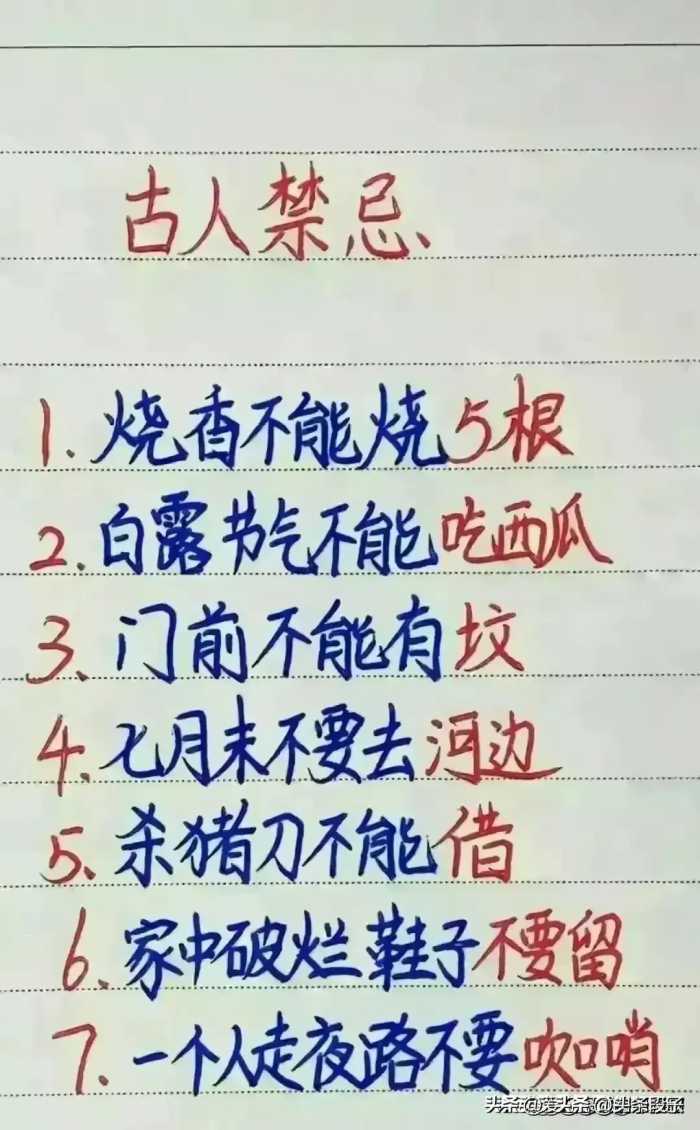 古人禁忌
1. 烧香不能烧5根
2. 白露节气不能吃西瓜
3. 门前不能有坟
4. 七月末不要去河边
5. 杀猪刀不能借
6. 家中破烂鞋子不要留
7. 一个人走夜路不要吹口哨